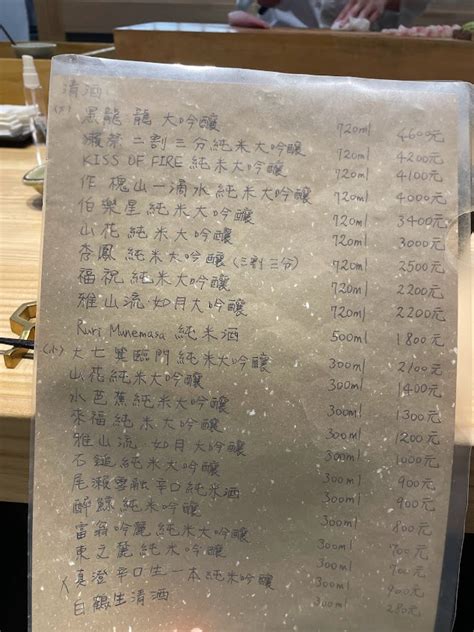 清酒
(大) 黑龍 龍 大吟釀 720ml 4600元
獺祭 二割三分 純米大吟釀 720ml 4200元
KISS OF FIRE 純米大吟釀 720ml 4100元
作 槐山一滴水 純米大吟釀 720ml 4000元
伯樂星 純米大吟釀 720ml 3400元
山花 純米大吟釀 720ml 3000元
鳳 純米大吟釀 (三割三分) 720ml 2500元
福祝 純米大吟釀 720ml 2200元
雅山流 如月大吟釀 720ml 2200元
Ruri Munemasa 純米酒 500ml 1800元
(小) 大七 箕輪門 純米大吟釀 300ml 2100元
山花 純米大吟釀 300ml 1400元
水芭蕉 純米大吟釀 300ml 1300元
來福 純米大吟釀 300ml 1200元
雅山流 如月大吟釀 300ml 1000元
石鎚 純米大吟釀 300ml 900元
尾瀨雪融 辛口純米酒 300ml 900元
醉鯨 純米吟釀 300ml 800元
富翁 吟麗 純米大吟釀 300ml 700元
東之麓 純米吟釀 300ml 700元
真澄 辛口生一本 純米吟釀 300ml 900元
白鶴 生清酒 300ml 280元